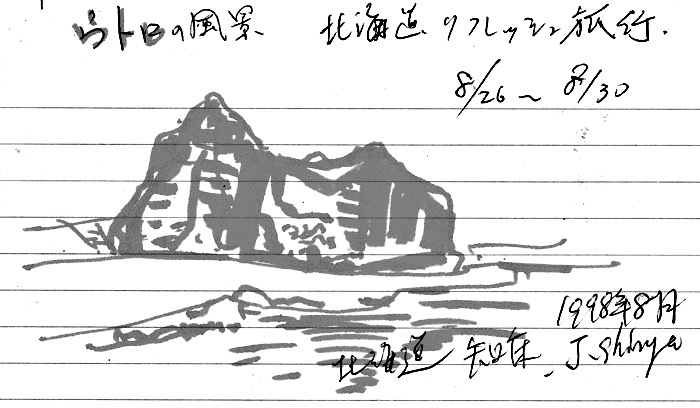 ウトロの風景 北海道リフレッシュ旅行.
8/26〜8/30
1998年8月
北海道 知床 J.Shinya